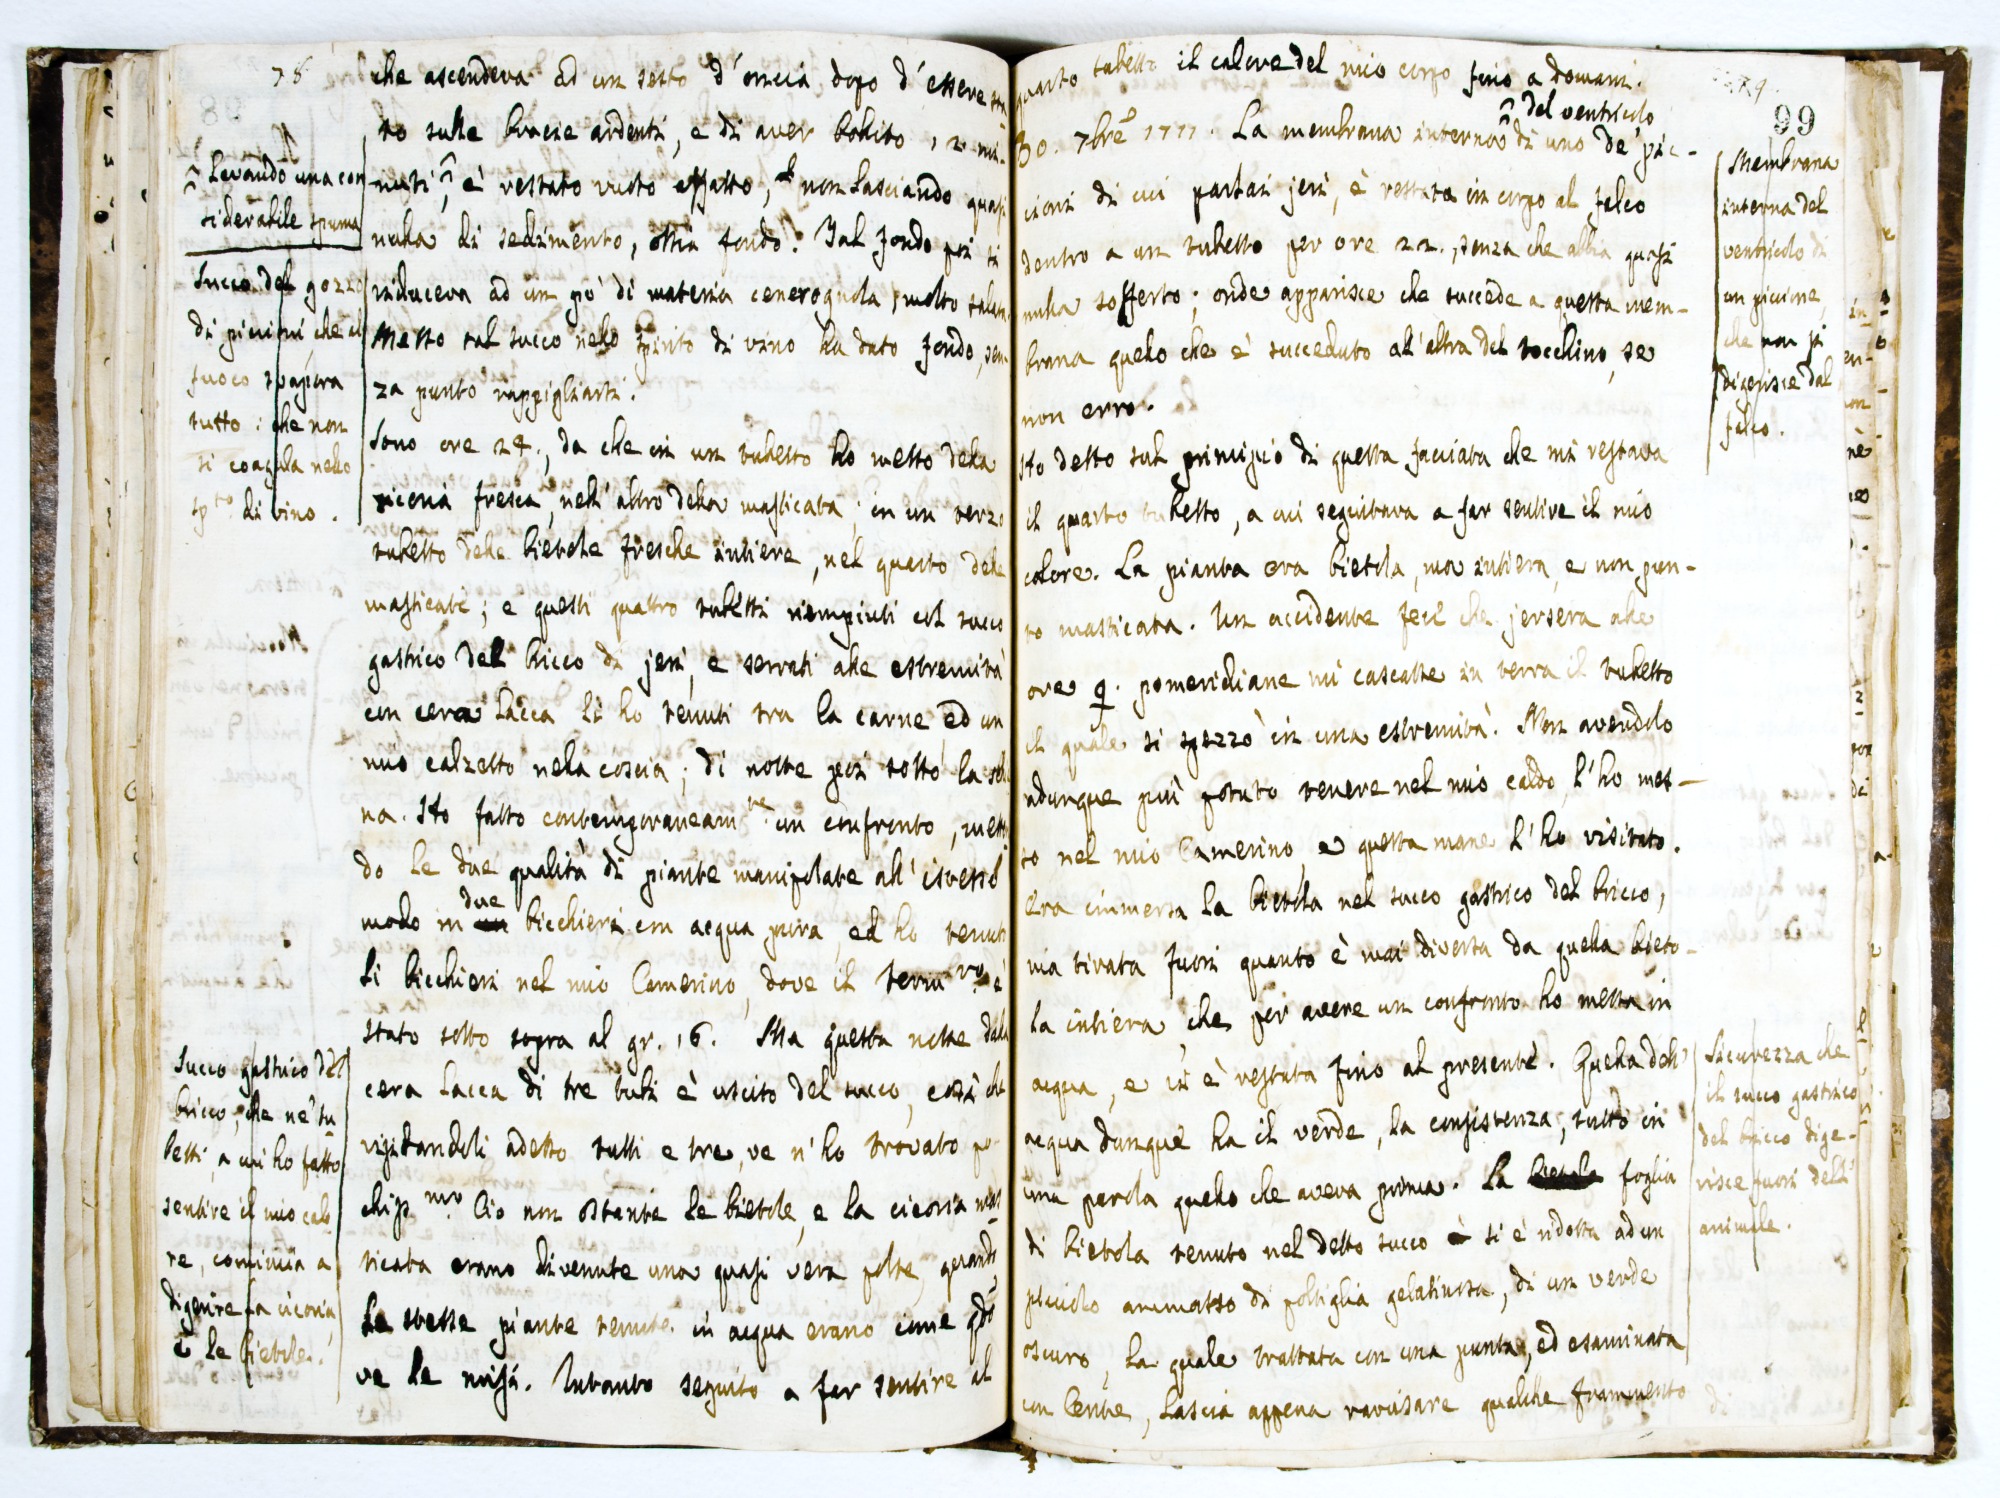 78
che ascendeva ad un sesto d'oncia dopo d'essere sta
to sulle bracie ardenti, e di aver bollito 12 mi-
nuti, è restato vuoto affatto, non lasciando quasi
nulla di sedimento, ossia fondo. Tal fondo poi si
riduceva ad un po' di materia cenerognola, molto salata.
Messo tal succo nello spirito di vino ha dato fondo, sen
za punto rappigliarsi.
Sono ore 24., da che in un tubetto ho messo della
cicoria fresca, nell'altro della masticata; in un terzo
tubetto delle bietole fresche intiere, nel quarto delle
masticate; e questi quattro tubetti riempiuti col succo
gastrico del bricco di jeri, e serrati alle estremità
con cera lacca li ho tenuti tra la carne ed un
mio calzetto nella coscia; di notte poi sotto la
na. Ho fatto contemporaneam.te un confronto, metten
do le due qualità di piante manipolate all'istesso
modo in due bicchieri con acqua pura, ed ho tenuti
li bicchieri nel mio Camerino, dove il term.ro è
stato sotto sopra al gr. 16. Ma questa notte dalla
cera lacca di tre tubi è uscito del succo, così che
visitandoli adesso tutti e tre, ve n'ho trovato po
chiss.mo. Ciò non ostante le bietole, e la cicoria mas
ticata erano divenute una quasi vera polte, quando
le stesse piante tenute in acqua erano come q.do
ve le misi. Intanto seguito a far sentire al
Levando una con
siderabile spuma
Succo del gozzo
di piccioni, che al
fuoco svapora
tutto: che non
si coagula nello
sp.to di vino.
Succo gastrico del
bricco, che ne' tu
betti, a cui ho fatto
sentire il mio calo
re, comincia a
digerire la cicoria,
e le bietole.
99
quarto tubetto il calore del mio corpo fino a domani.
30. 7bre 1777. La membrana interna del ventricolo di uno de' pic-
cioni di cui parlai jeri, è restata in corpo al falco
dentro a un tubetto per ore 22., senza che abbia quasi
nulla sofferto; onde apparisce che succede a questa mem-
brana quello che è succeduto all'altra del tocchino, se
non erro.
Ho detto sul principio di questa facciata che mi restava
il quarto tubetto, a cui seguitava a far sentire il mio
calore. La pianta era bietola, ma intiera, e non pun-
to masticata. Un accidente fece che jersera alle
ore 9. pomeridiane mi cascasse in terra il tubetto
il quale si spezzò in una estremità. Non avendolo
adunque più potuto tenere nel mio caldo, l'ho mes-
so nel mio Camerino, e questa mane l'ho visitato.
Era immersa la bietola nel succo gastrico del bricco,
ma tirata fuori quanto è mai diversa da quella bieto-
la intiera, che per avere un confronto ho messa in
acqua, e vi è restata fino al presente. Quella dell'
acqua dunque ha il verde, la consistenza, tutto in
una parola quello che aveva prima. La foglia
di bietola tenuta nel detto succo si è ridotta ad un
picciolo ammasso di poltiglia gelatinosa, di un verde
oscuro, la quale trattata con una punta, ed esaminata
con lente, lascia appena ravvisare qualche frammento
Membrana
interna del
ventricolo di
un piccione,
che non si
digerisce dal
falco.
Sicurezza che
il succo gastrico
del bricco dige-
risce fuori dell'
animale.